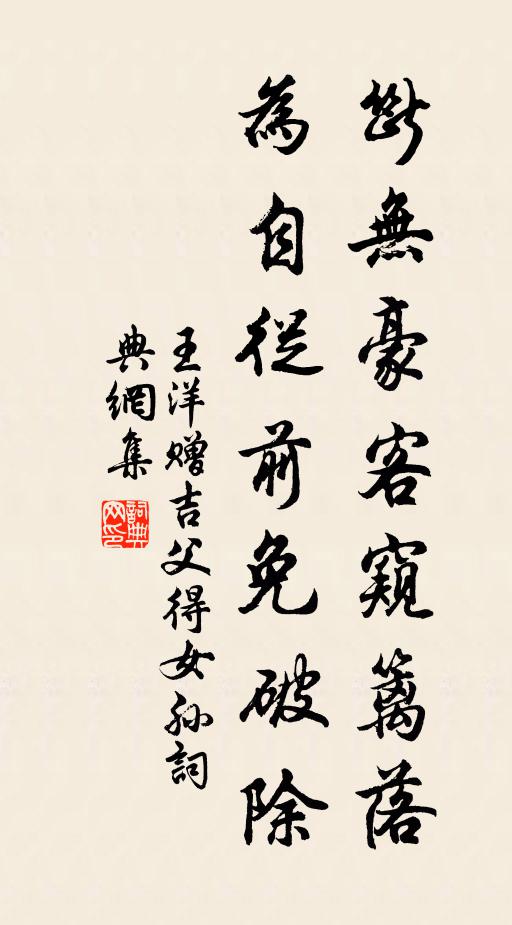 斷無豪客窺籬落
為自從前免破除
王洋贈吉父得女孫詞
典網集
詞典
网印